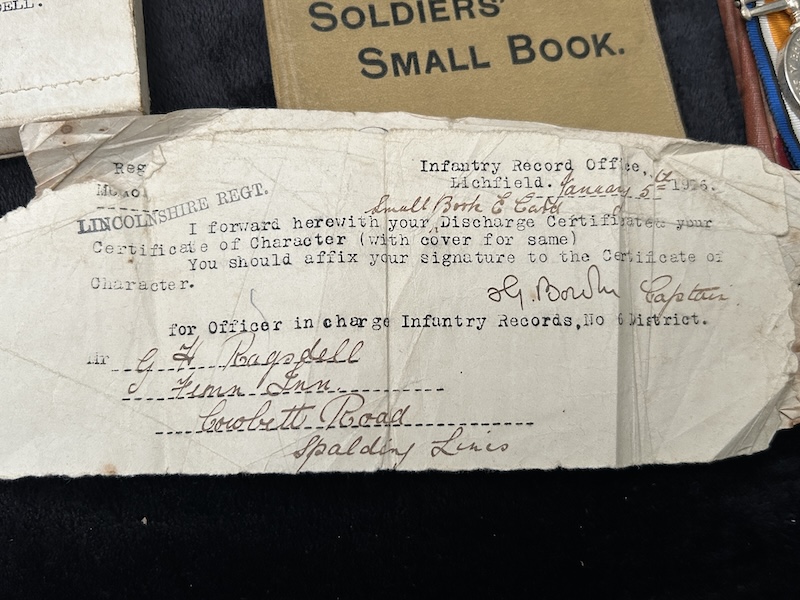 ELL.
SOLDIERS'
SMALL BOOK.
Reg
Memo
Infantry Record Office,
Lichfield. January 5th 1916.
LINCOLNSHIRE REGT.
Small Book & Card
I forward herewith your Discharge Certificate your
Certificate of Character (with cover for same)
You should affix your signature to the Certificate of
Character.
Captain
for Officer in charge Infantry Records, No 6 District.
Mr G H Ragsdell
Inn
Road
Spalding Lincs